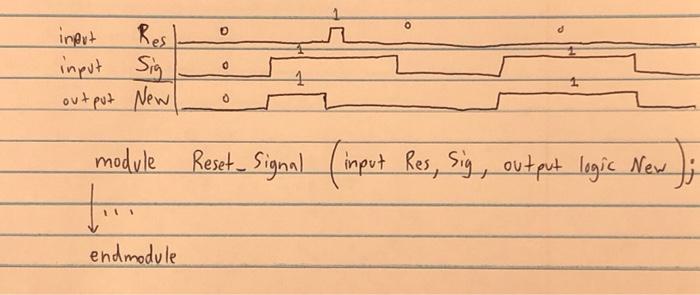 1
input Res 0 0 0
1 1
input Sig 0
1 1
output New 0
module Reset_Signal (input Res, Sig, output logic New);
...
endmodule